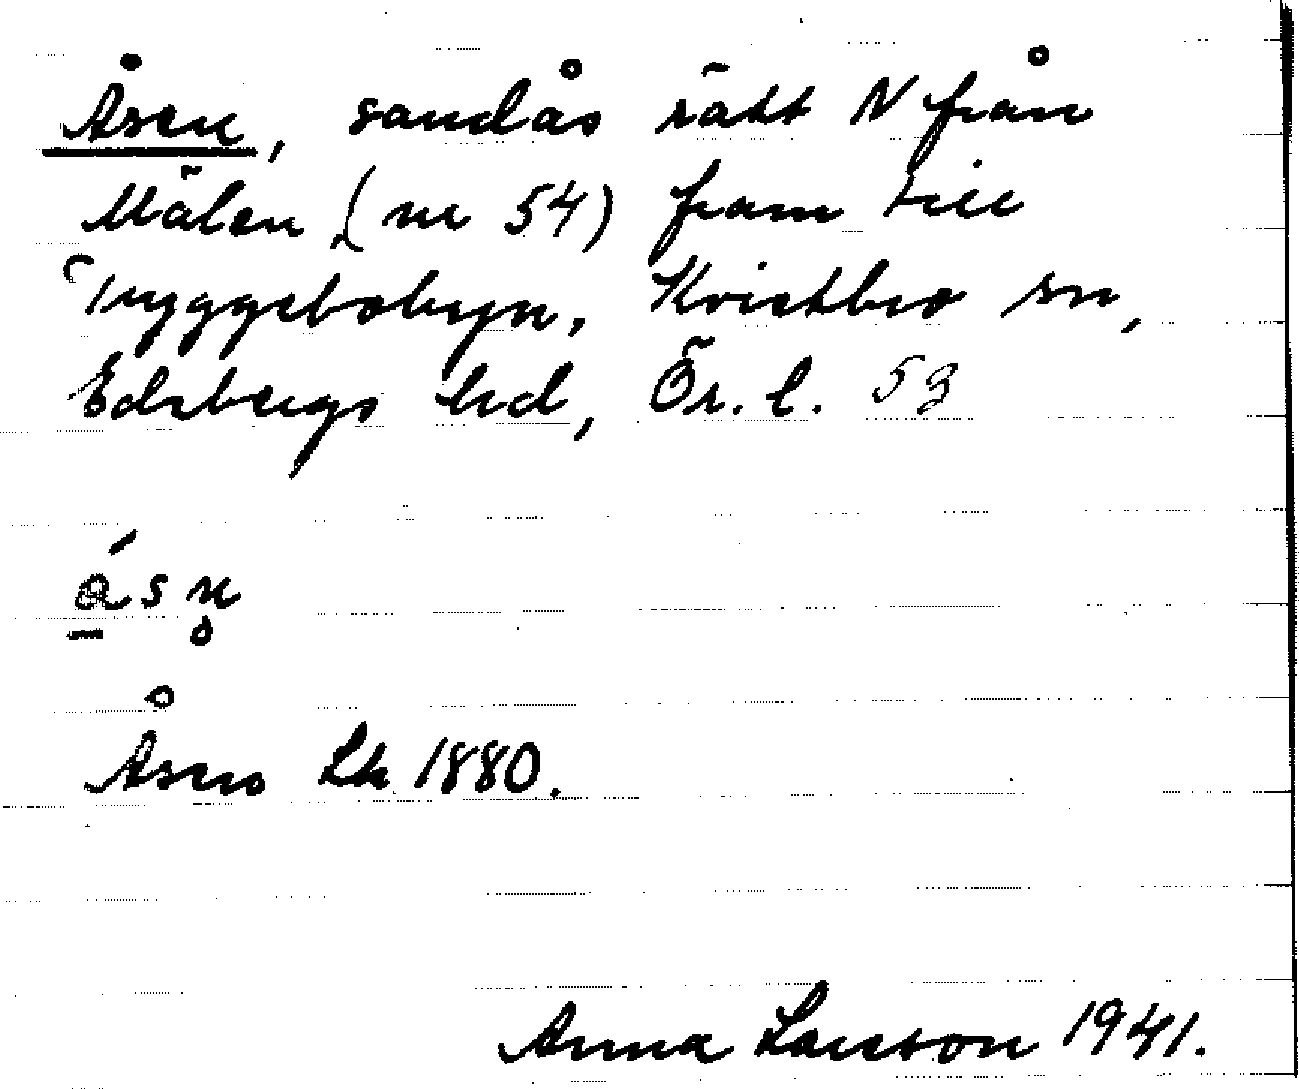 Åsen, sandås rätt N från
Mälen (nr 54) fram till
Tryggebobyn, Kvistbro sn,
Edsbergs hd, Ör. l. 53
åsn̥
Åsen Lk 1880.
Anna Larsson 1941.